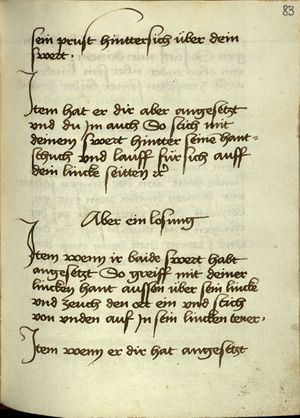 83
sein prust hinttersich über dein
swert.
Item hat er dir aber angesetzt
vnd du Im auch So stich mit
deinem swert hintter seine hant-
schuch vnd lauff für sich auff
dein lincke seitten
Aber ein losung
Item wenn ir baide swert habt
angesetzt So greiff mit deiner
lincken hant aussen über sein lincke
vnd zeuch den ort ein vnd stich
von vnden auf In sein lincken tener.
Item wenn er dir hat angesetzt